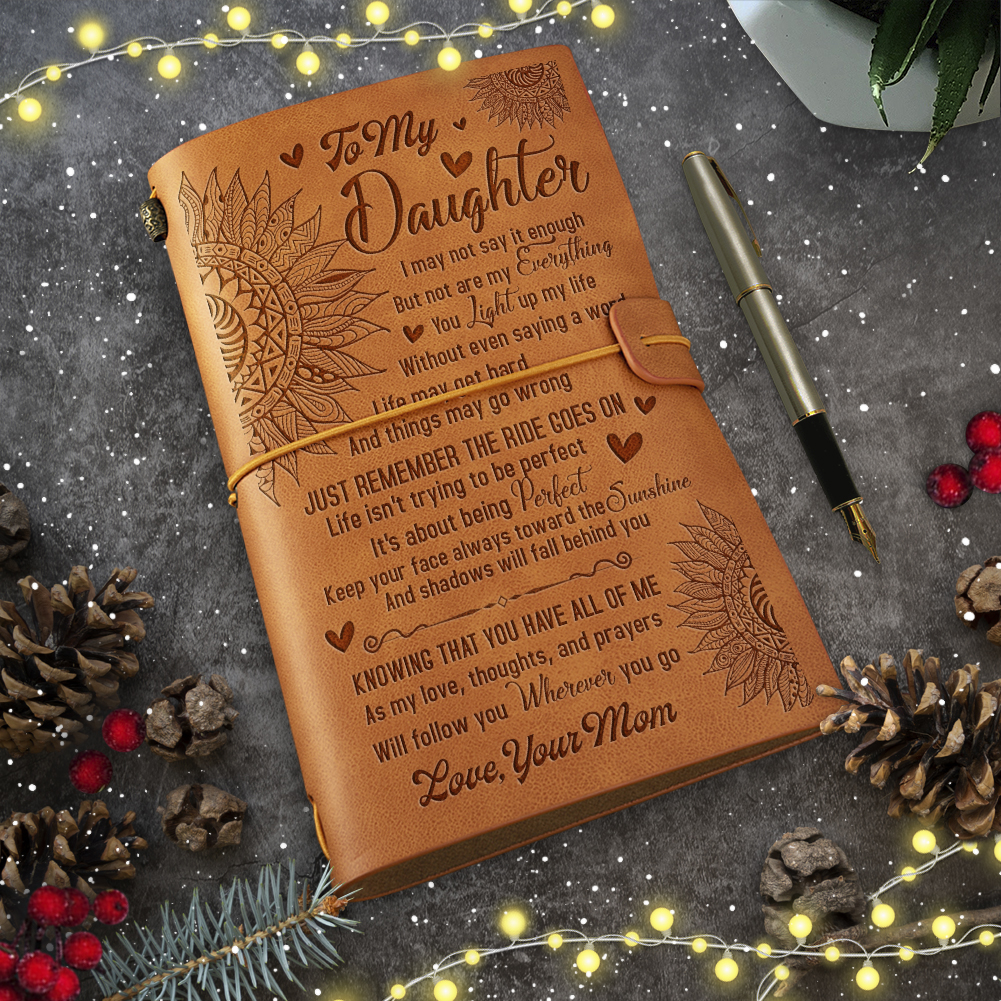 To My
Daughter
I may not say it enough
But not are my Everything
You Light up my life
Without even saying a word
Life may get hard
And things may go wrong
JUST REMEMBER THE RIDE GOES ON
Life isn't trying to be perfect
It's about being Perfect
Keep your face always toward the Sunshine
And shadows will fall behind you
KNOWING THAT YOU HAVE ALL OF ME
As my love, thoughts, and prayers
Will follow you Wherever you go
Love, Your Mom